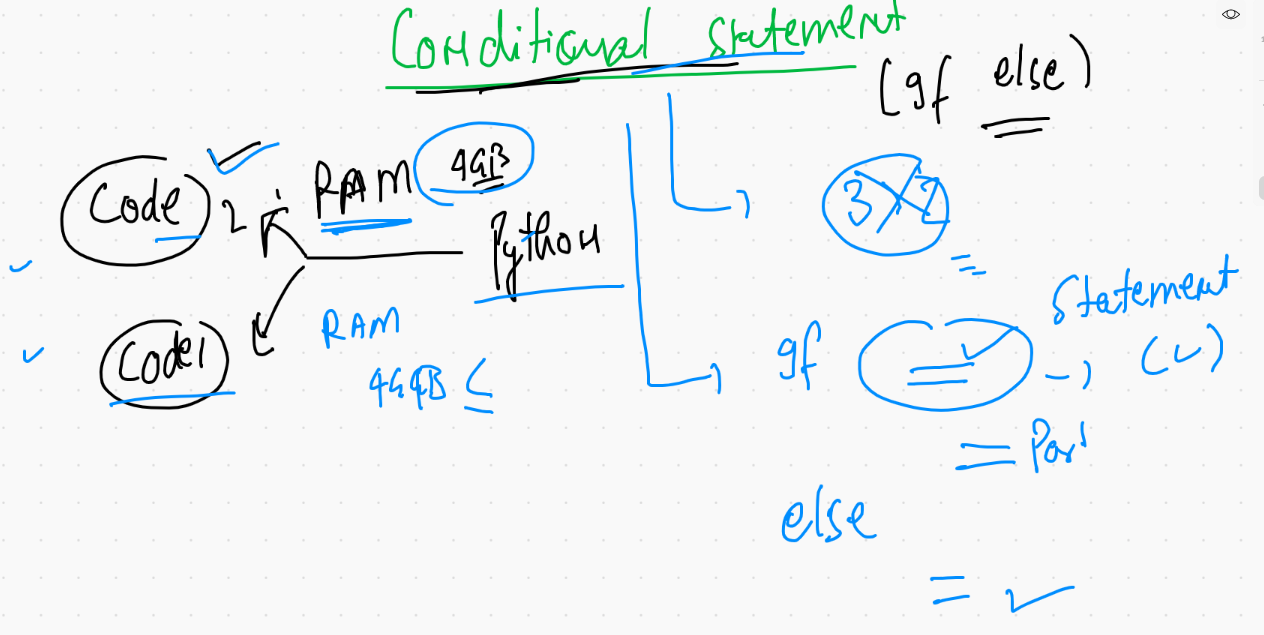 Conditional statement
(If else)
Code 2
RAM 4GB
Python
Code 1
RAM
4GB ≤
3 > 2
If
→ Statement
(✓)
= Part
else
= ✓